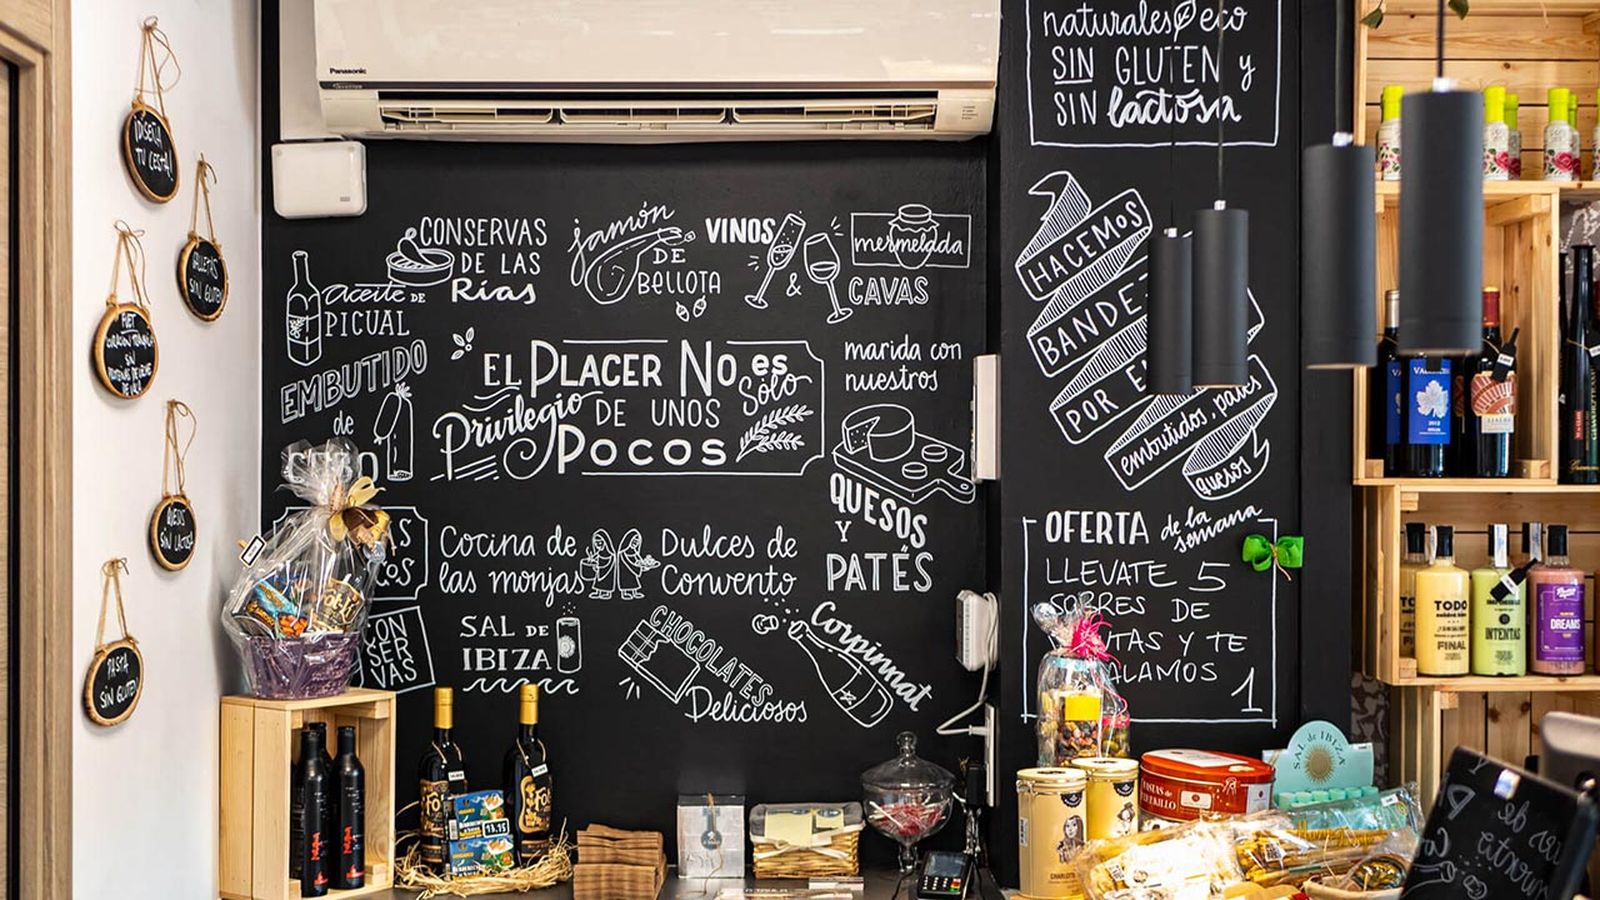 Panasonic
¡DISEÑA
TU CESTA!
GALLETAS
SIN GLUTEN
FUET
SIN
HUEVOS
SIN LACTOSA
PASTA
SIN GLUTEN
CONSERVAS
DE LAS
Rías
jamón
DE
BELLOTA
VINOS
&
CAVAS
mermelada
aceite DE
PICUAL
EMBUTIDO
de
CEBO
EL PLACER NO es
Sólo
Privilegio DE UNOS
POCOS
marida con
nuestros
QUESOS
Y
PATÉS
Cocina de
las monjas
Dulces de
Convento
CON
SER
VAS
SAL DE
IBIZA
CHOCOLATES
Deliciosos
Corpinnat
naturales eco
SIN GLUTEN y
SIN lactosa
HACEMOS
BANDE
POR E
embutidos, patés
quesos
OFERTA de la
semana
LLEVATE 5
SOBRES DE
TAS Y TE
ALAMOS
1
TODO
FINAL
INTENTAS
DREAMS
SAL de IBIZA
13,15